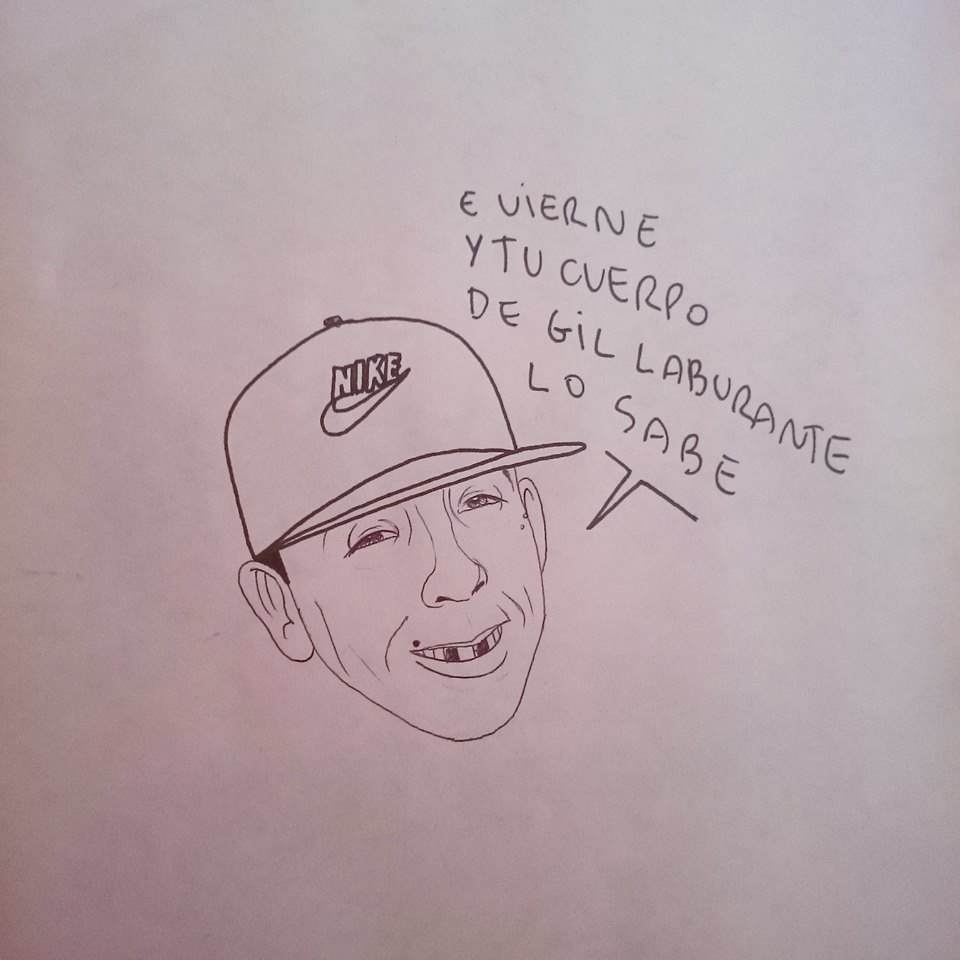 E VIERNE
Y TU CUERPO
DE GIL LABURANTE
LO SABE
NIKE